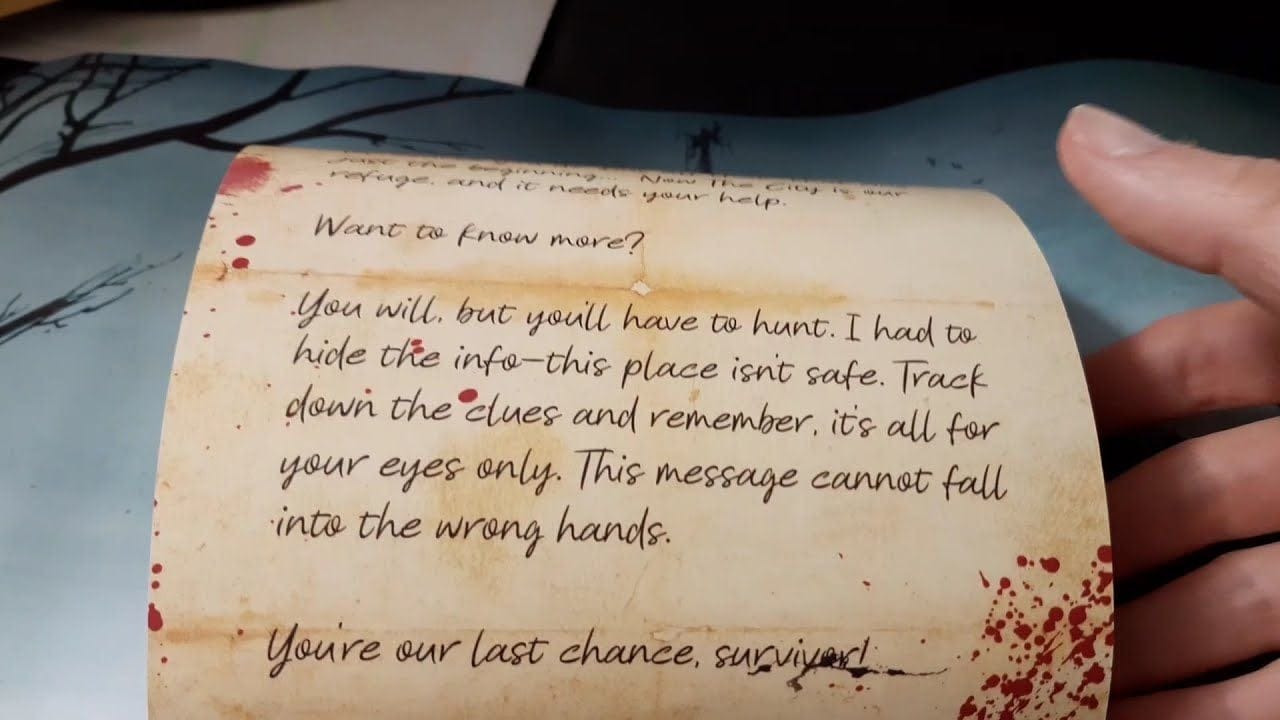 Just the beginning... Now The City is our
refuge, and it needs your help.
Want to know more?
You will, but you'll have to hunt. I had to
hide the info—this place isn't safe. Track
down the clues and remember, it's all for
your eyes only. This message cannot fall
into the wrong hands.
You're our last chance, survivor!